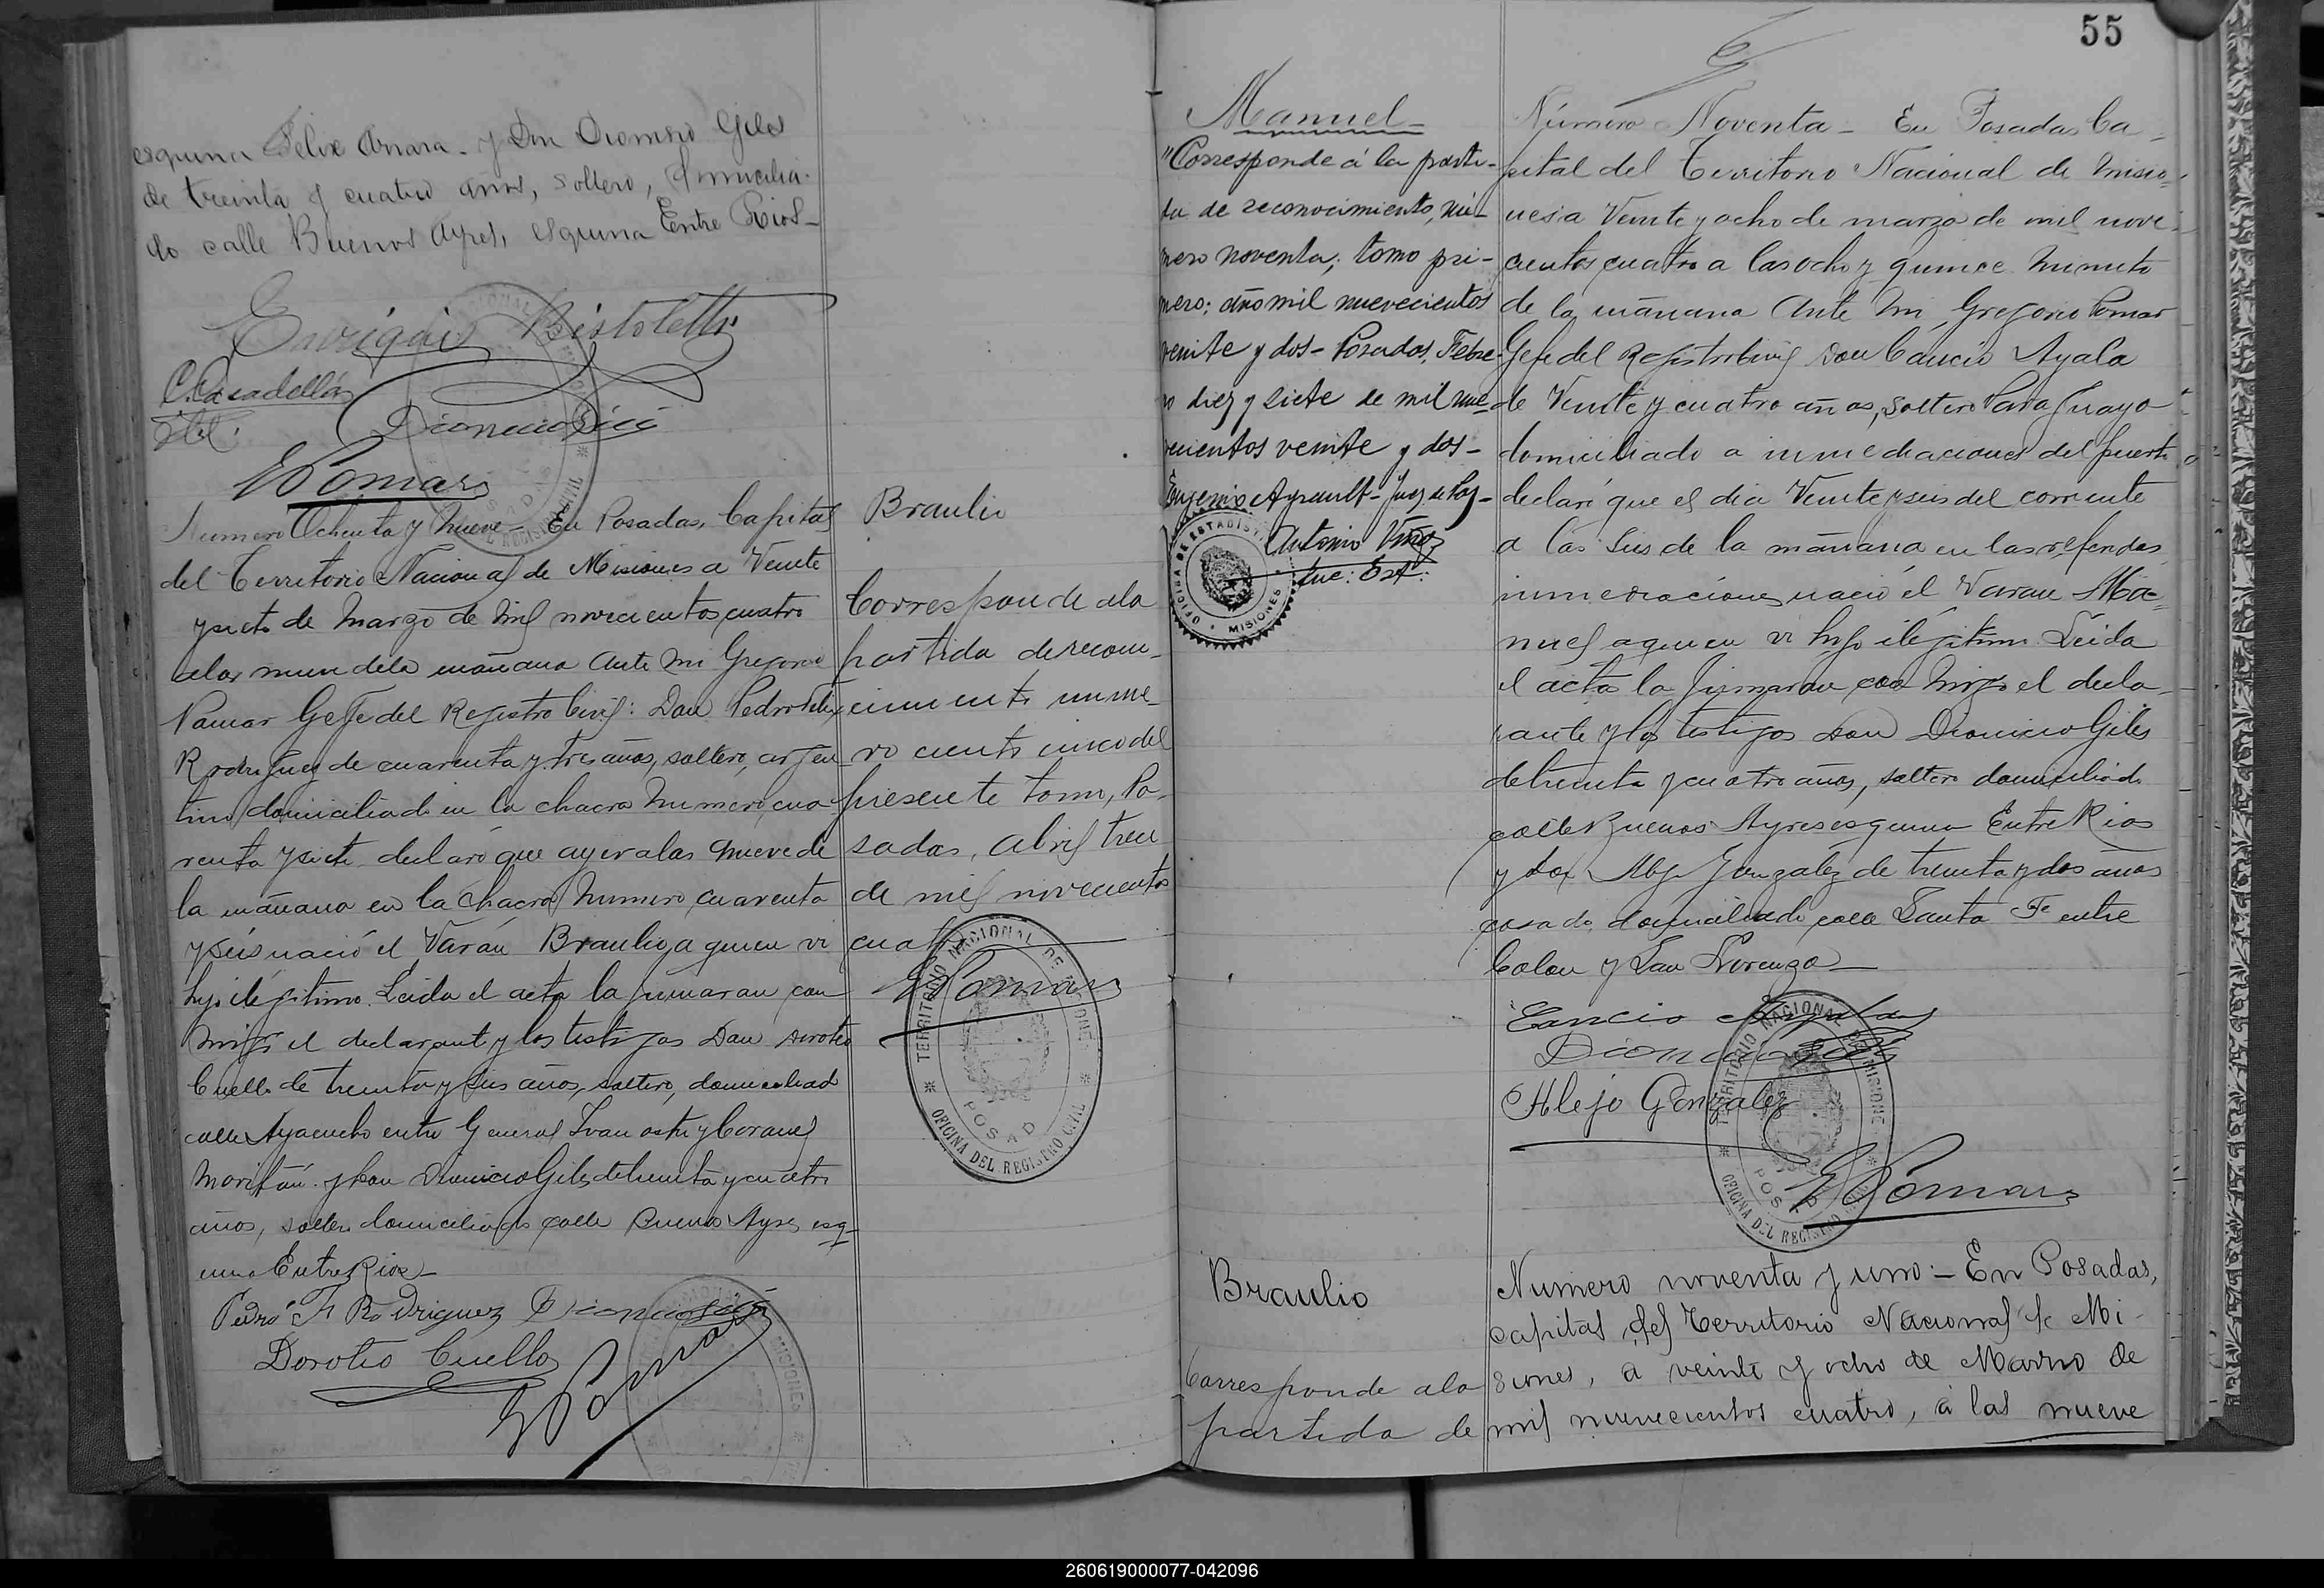 esquina Felix Asnara. y Don Dionisio Giles
de treinta y cuatro años, soltero, domicilia-
do calle Buenos Ayres, esquina Entre Rios-
Casadellá
Dionicio
GPomar
Numero Ochenta y Nueve- En Posadas, Capital
del Territorio Nacional de Misiones a Veinte
ysiete de Marzo de Mil novecientos cuatro
de la mañana Ante Mi Gregorio
Pomar Gefe del Registro Civil: Don Pedro
Rodriguez de cuarenta y tres años, soltero, argen
tino domiciliado en la chacra Numero cua-
renta ysiete declaró que ayer alas nueve de
la mañana en la Chacra Numero cuarenta
yseis nació el Varón Braulio, a quien vi
hijo ilegitimo. Leida el acta la firmaran con
migo el declarante y los testigos Don Doroteo
Cuello de treinta y seis años, soltero, domiciliado
calle Ayacucho entre General y Coronel
y Don Dionicio Giles de treinta y cuatro
años, soltero domiciliado calle Buenos Ayres esq-
uina Entre Rios-
Pedro F Rodriguez Dionicio
Doroteo Cuello
GPomar
Braulio
Corresponde ala
partida de recono-
cimiento nume-
ro ciento cinco del
presente tomo, Po-
sadas, Abril trece
de mil novecientos
cuatro
GPomar
TERRITORIO NACIONAL DE MISIONES
POSADAS
OFICINA DEL REGISTRO CIVIL
55
Manuel
"Corresponde á la parti-
da de reconocimiento, nú-
mero noventa; tomo pri-
mero; año mil nuevecientos
veinte y dos- Posadas, Febre-
ro diez y siete de mil nue-
vecientos veinte y dos-
Eugenio Ayrault- Juez de Paz-
Antonio
OFICINA DE ESTADIST
MISIONES
Número Noventa- En Posadas Ca-
pital del Territorio Nacional de Misio-
nes a Veinte y ocho de marzo de mil nove-
cientos cuatro a las ocho y quince Minuto
de la mañana Ante Mi, Gregorio Pomar
Gefe del Registro Civil Don Cancio Ayala
de Veinte y cuatro años, soltero Paraguayo
domiciliado a inmediaciones del puerto
declaró que el dia Veinte y seis del corriente
a las seis de la mañana en las referidas
inmediaciones nació el Varon Ma-
nuel a quien vi hijo ilegitimo Leida
el acta la firmaran con migo el decla-
rante y los testigos Don Dionicio Giles
de treinta y cuatro años, soltero domiciliado
calle Buenos Ayres esquina Entre Rios
y Don Alejo Gonzalez de treinta y dos años
casado, domiciliado calle Santa Fe entre
Colon y San Lorenzo-
Cancio Ayala
Dionicio
Alejo Gonzalez
GPomar
TERRITORIO NACIONAL DE MISIONES
POSADAS
OFICINA DEL REGISTRO CIVIL
Braulio
Corresponde ala
partida de
Numero noventa y uno:- En Posadas,
capital del Territorio Nacional de Mi-
siones, a veinte y ocho de Marzo de
mil nuevecientos cuatro, á las nueve
260619000077-042096